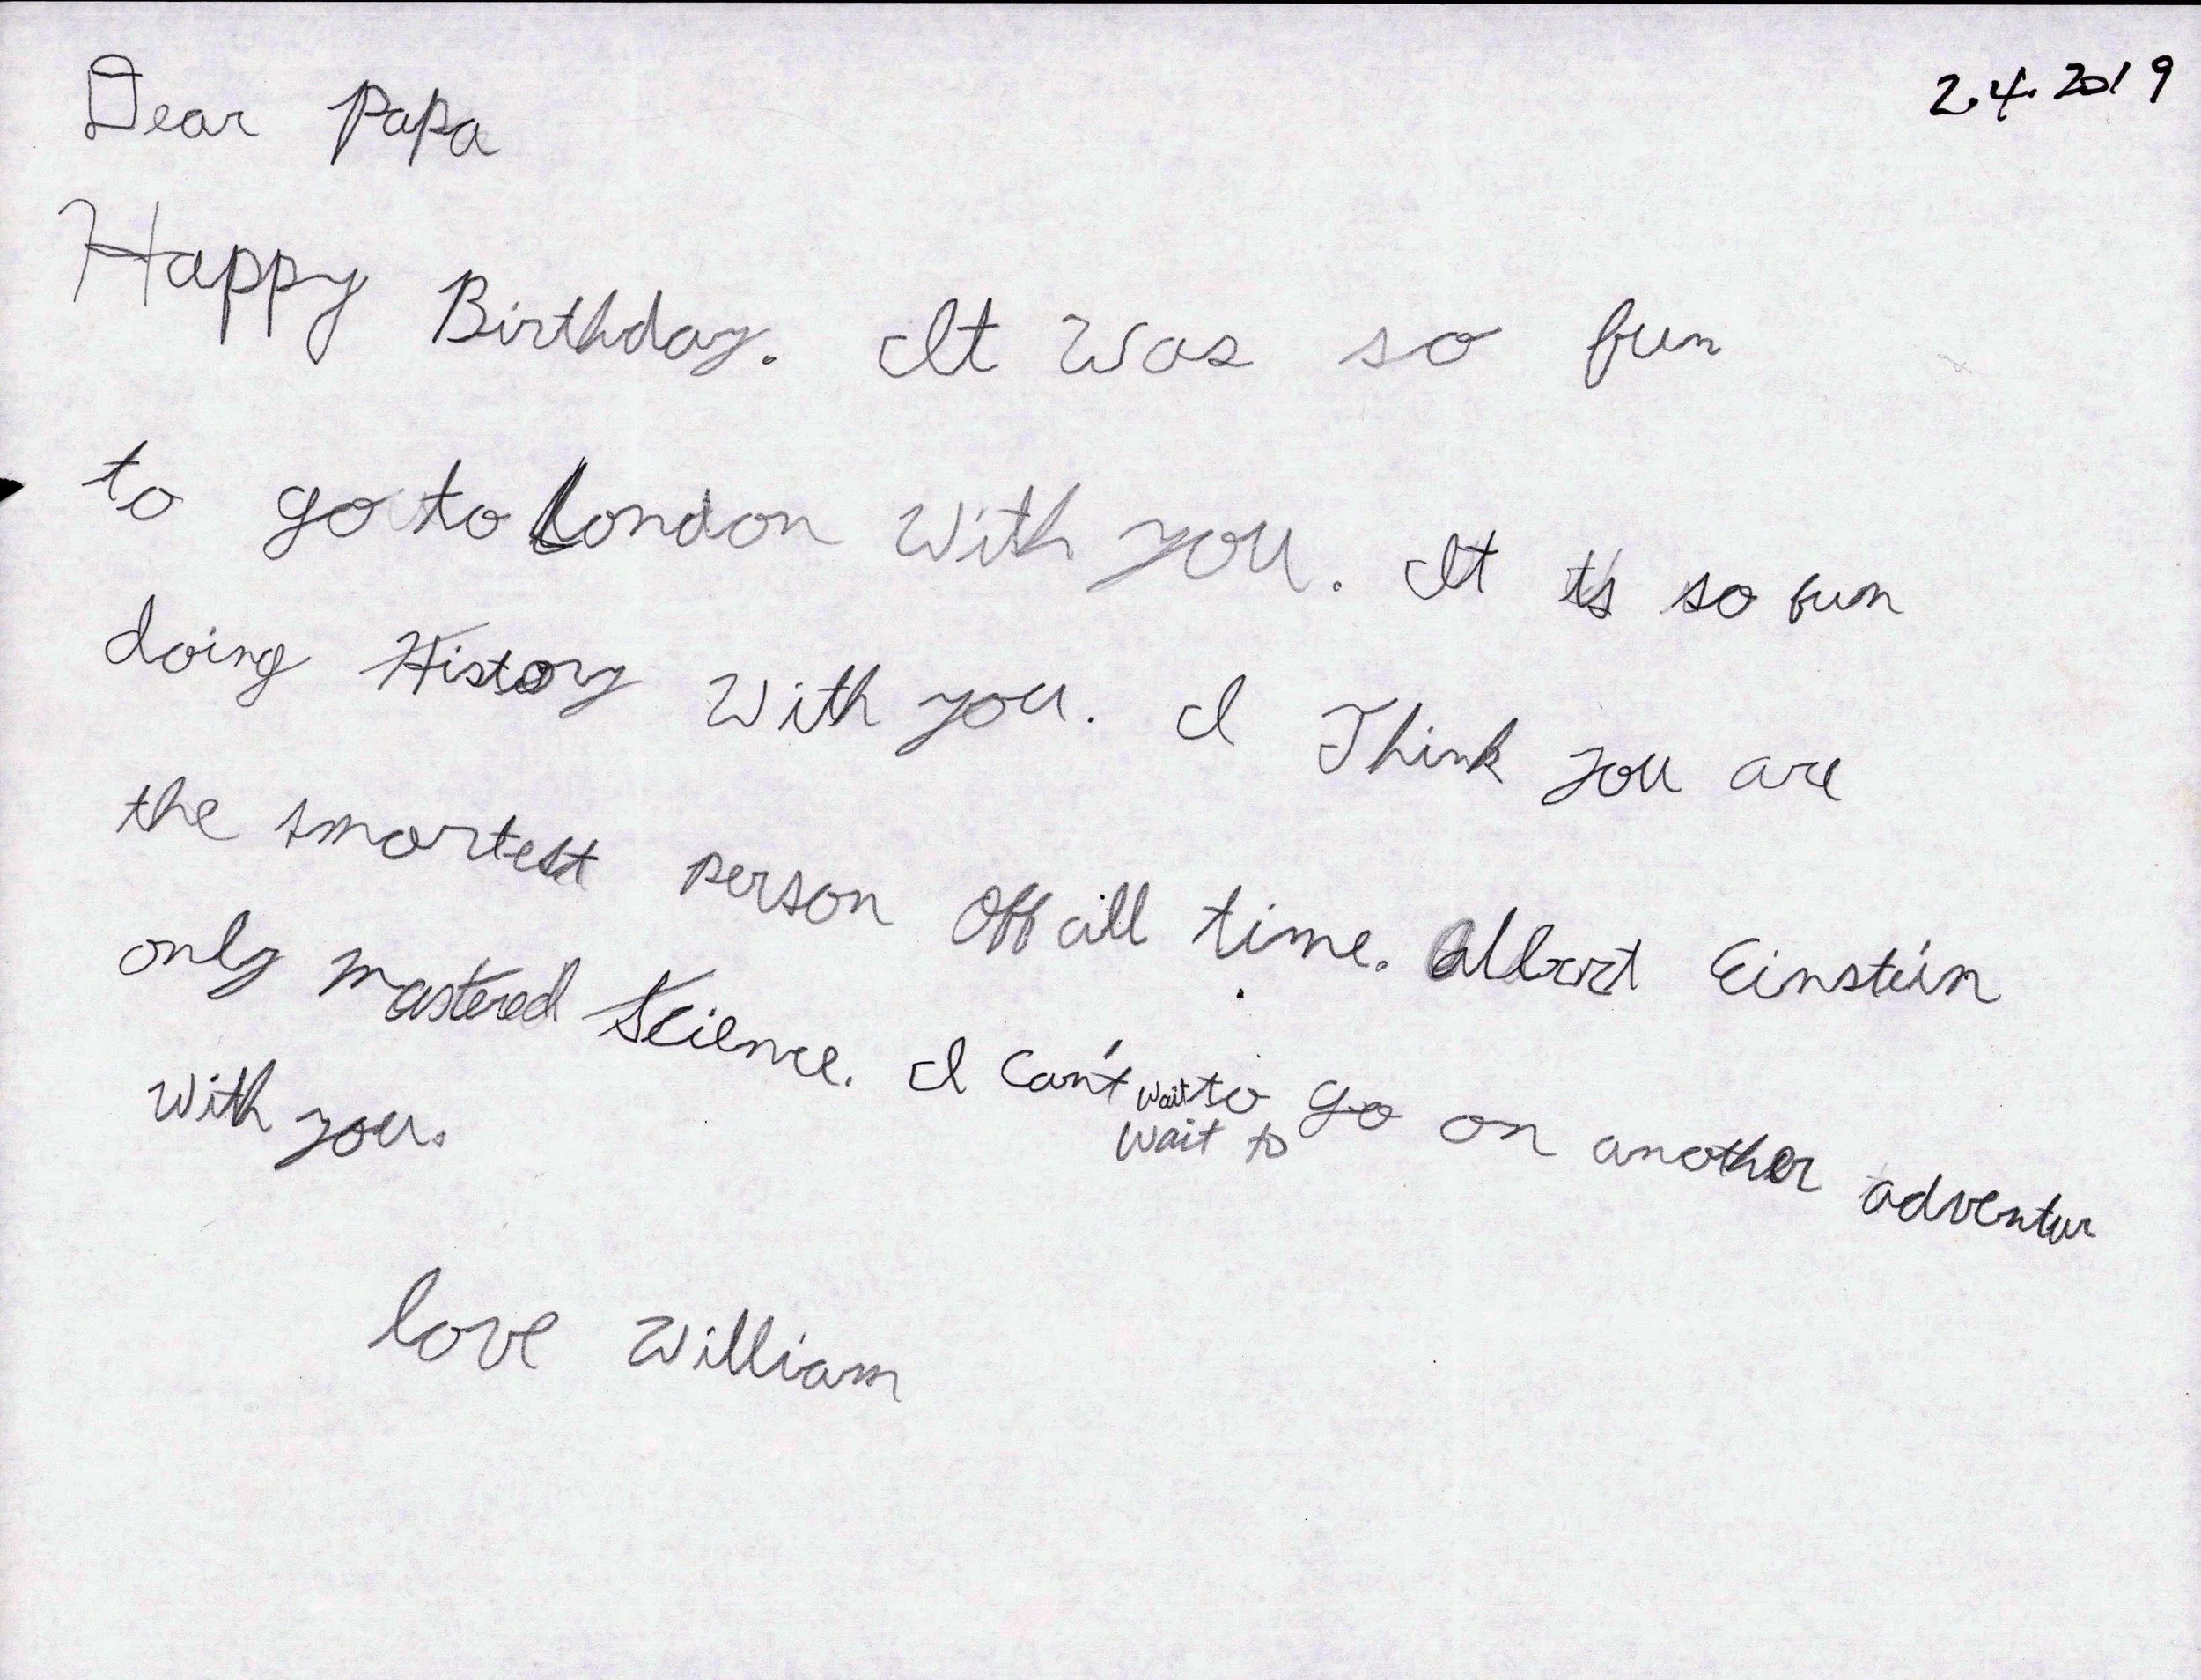 2.4.2019
Dear Papa
Happy Birthday. It was so fun
to go to London with you. It is so fun
doing History with you. I Think you are
the smartest person Off all time. Albert Einstein
only mastered Science. I can't wait to go on another adventur
wait to
with you.
love William